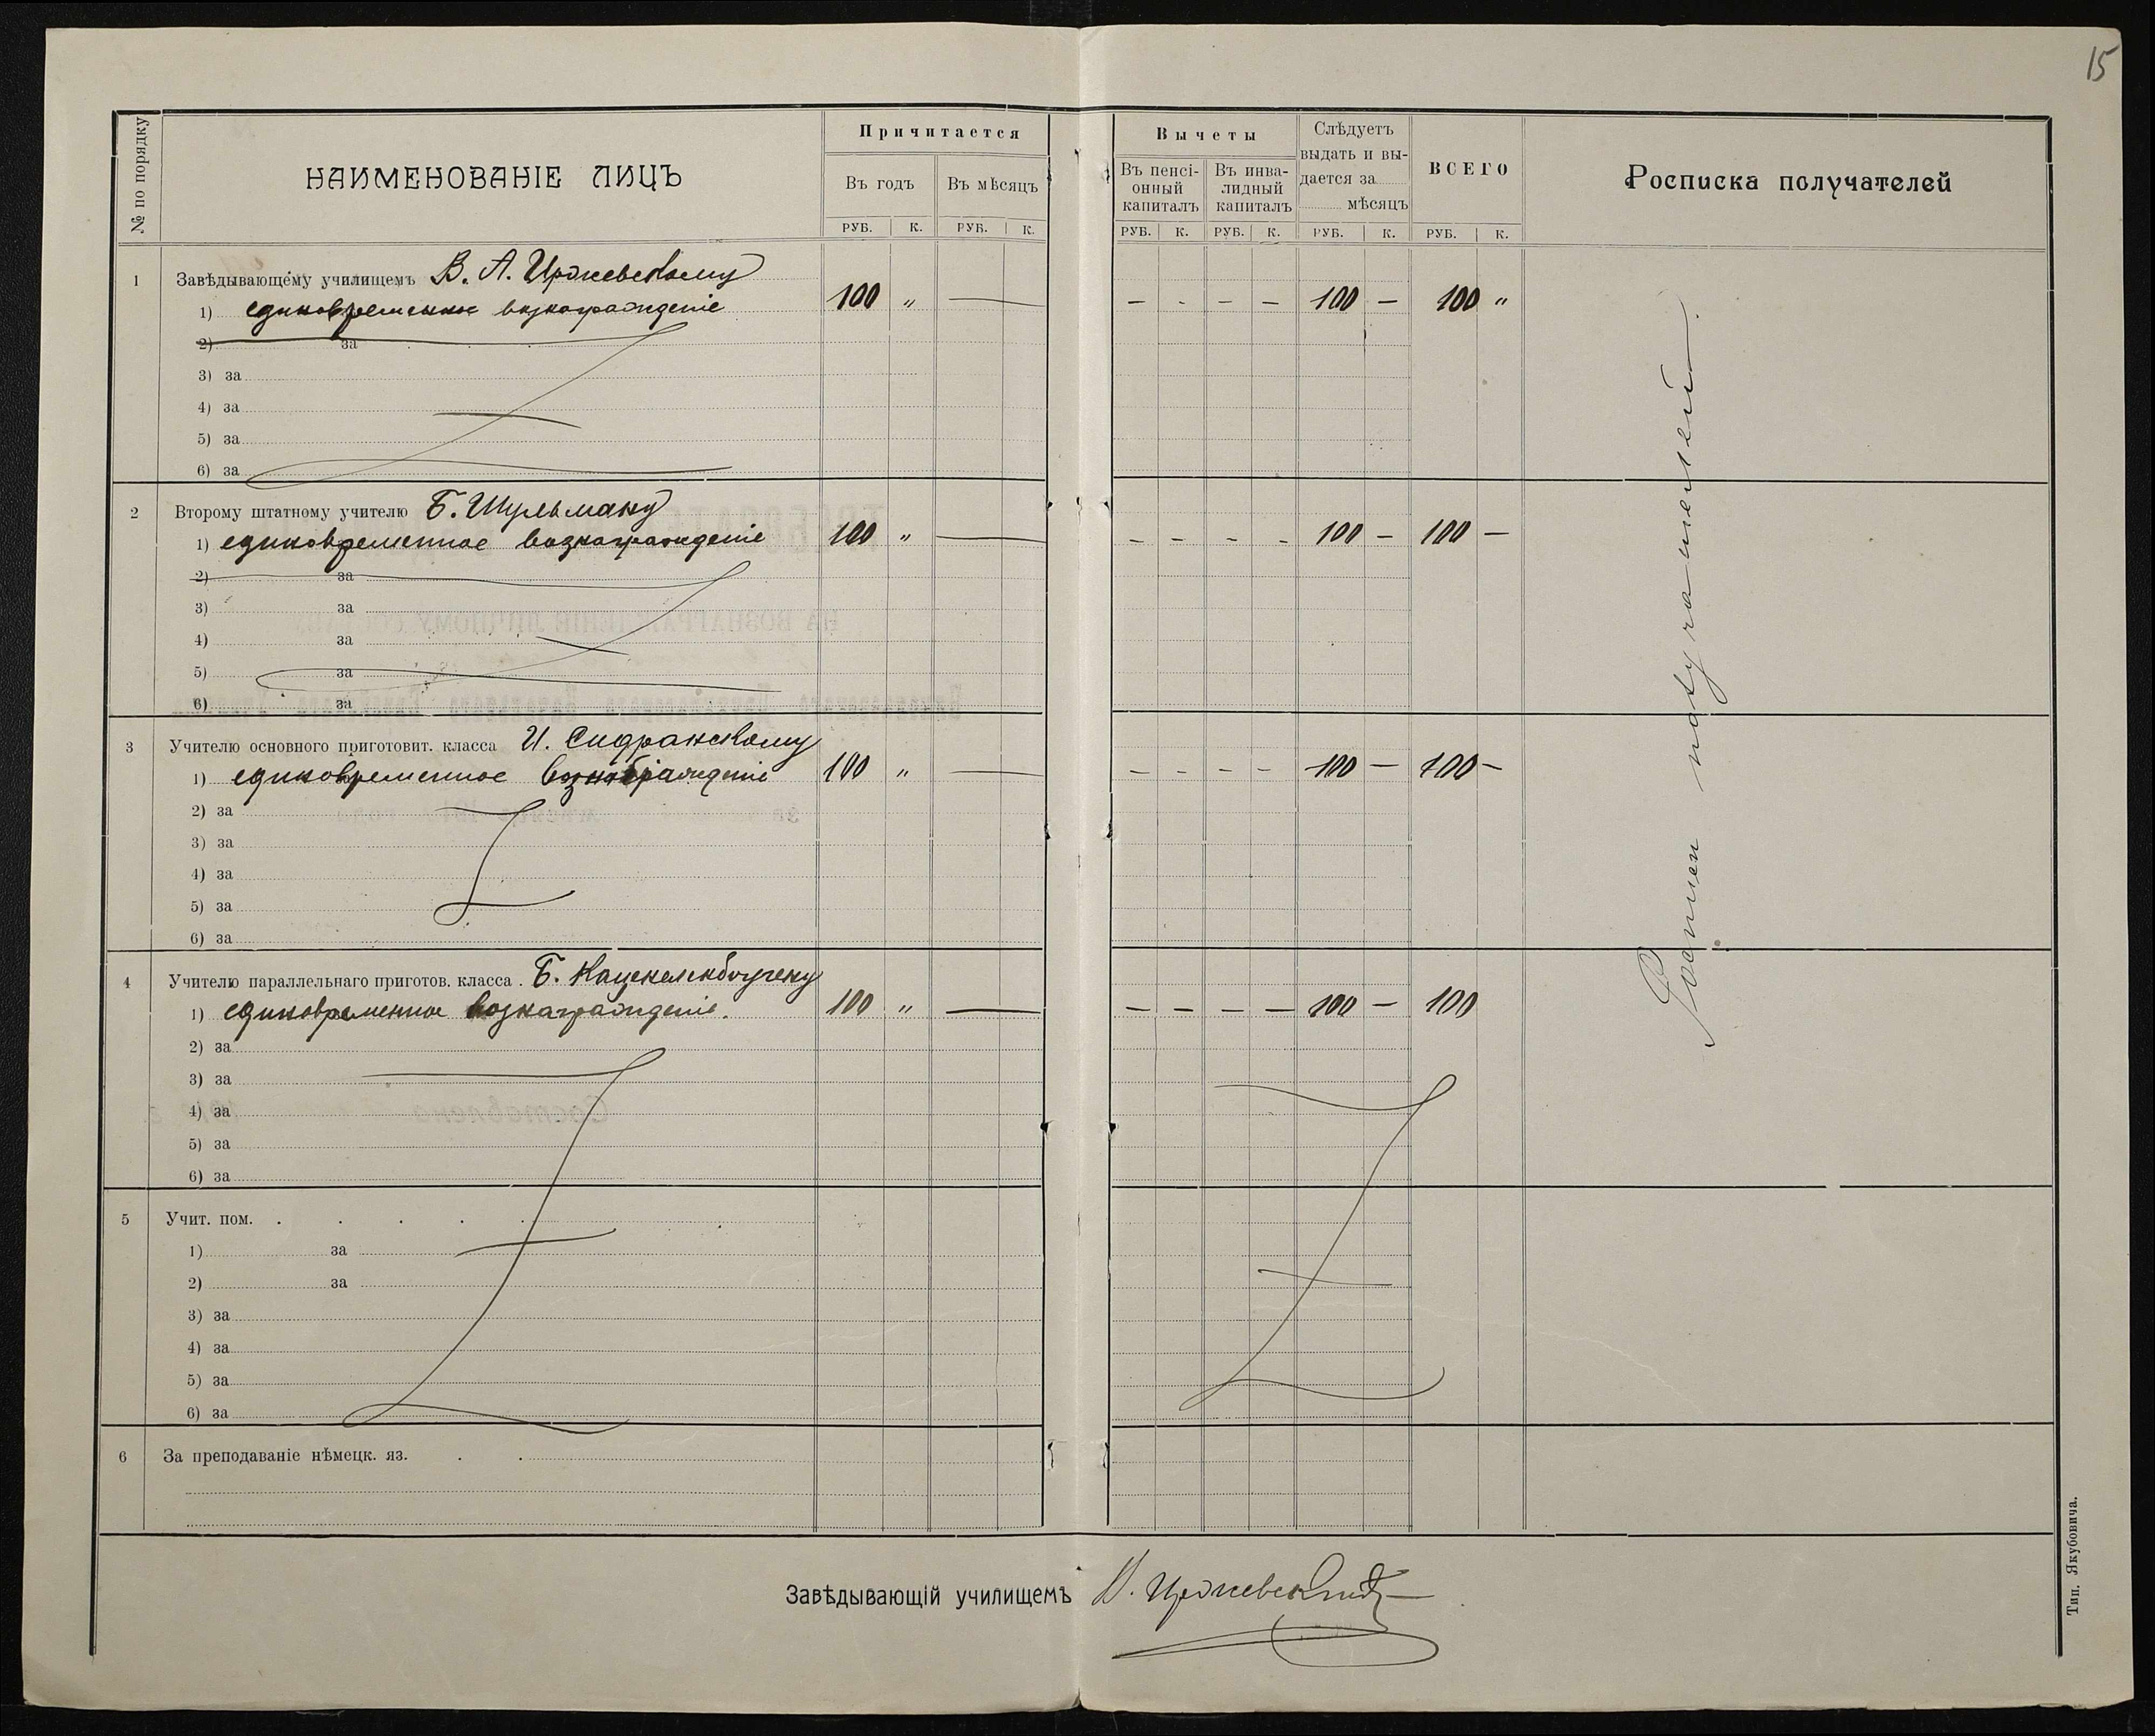 15
№ по порядку
НАИМЕНОВАНІЕ ЛИЦЪ
Причитается
Въ годъ
Въ мѣсяцъ
РУБ. К. РУБ. К.
Вычеты
Въ пенсі-
онный
капиталъ
Въ инва-
лидный
капиталъ
Слѣдуетъ
выдать и вы-
дается за
мѣсяцъ
ВСЕГО
Росписка получателей
РУБ. К. РУБ. К. РУБ. К. РУБ. К.
1 Завѣдывающему училищемъ В. А.
1) единовременное вознагражденіе 100 „ — — - — — 100 — 100 „
2) за
3) за
4) за
5) за
6) за
2 Второму штатному учителю Б. Шульману
1) единовременное вознагражденіе 100 „ — - - - - 100 — 100 —
2) за
3) за
4) за
5) за
6) за
3 Учителю основного приготовит. класса И. Сидранскому
1) единовременное вознагражденіе 100 „ — - - - - 100 — 100 —
2) за
3) за
4) за
5) за
6) за
4 Учителю параллельнаго приготов. класса . Б. Каценеленбогену
1) единовременное вознагражденіе. 100 „ — — — — — 100 — 100
2) за
3) за
4) за
5) за
6) за
5 Учит. пом. . . . . .
1) за
2) за
3) за
4) за
5) за
6) за
6 За преподаваніе нѣмецк. яз. . .
Завѣдывающій училищемъ
Тип. Якубовича.